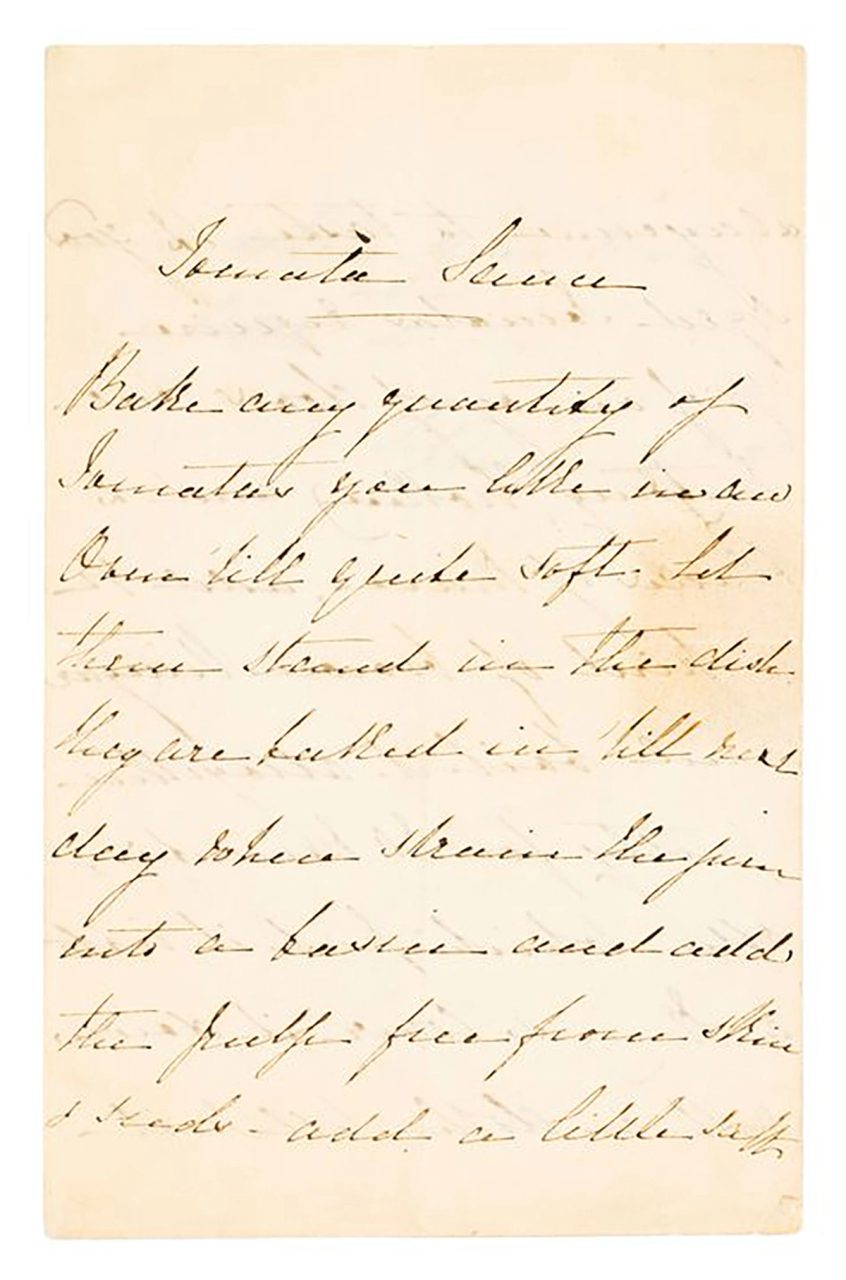 Tomata Sauce
Bake any quantity of
Tomatas you like in an
Oven 'till quite soft. Let
them stand in the dish
they are baked in 'till next
day when strain the juice
into a basin and add
the pulp free from skin
& seeds - add a little salt